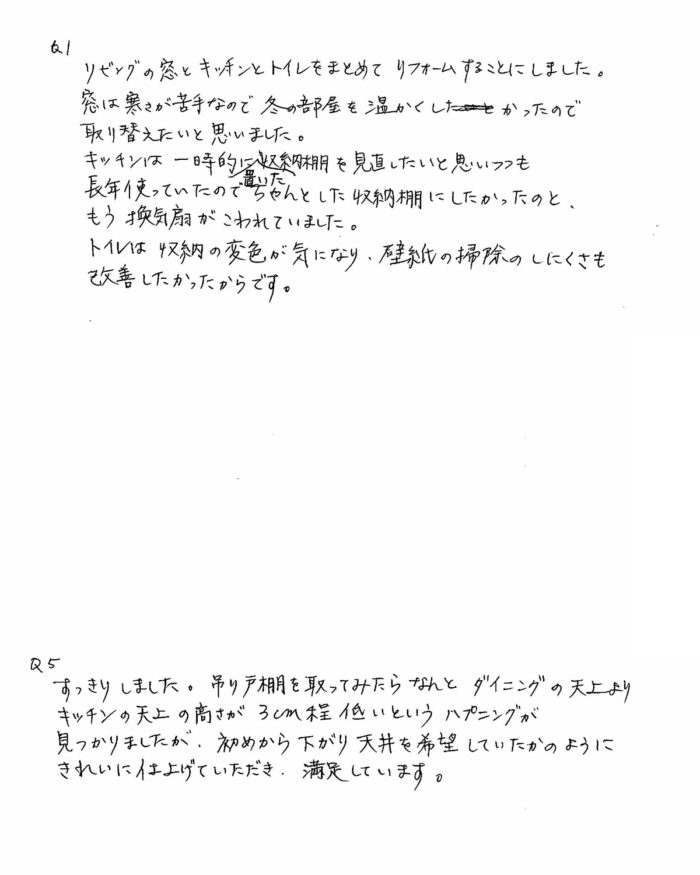 Q1
リビングの窓とキッチンとトイレをまとめてリフォームすることにしました。
窓は寒さが苦手なので冬の部屋を温かくしたかったので
取り替えたいと思いました。
キッチンは一時的に置いた収納棚を見直したいと思いつつも
長年使っていたのでちゃんとした収納棚にしたかったのと、
もう換気扇がこわれていました。
トイレは収納の変色が気になり、壁紙の掃除のしにくさも
改善したかったからです。
Q5
すっきりしました。吊り戸棚を取ってみたらなんとダイニングの天上より
キッチンの天上の高さが3cm程低いというハプニングが
見つかりましたが、初めから下がり天井を希望していたかのように
きれいに仕上げていただき、満足しています。